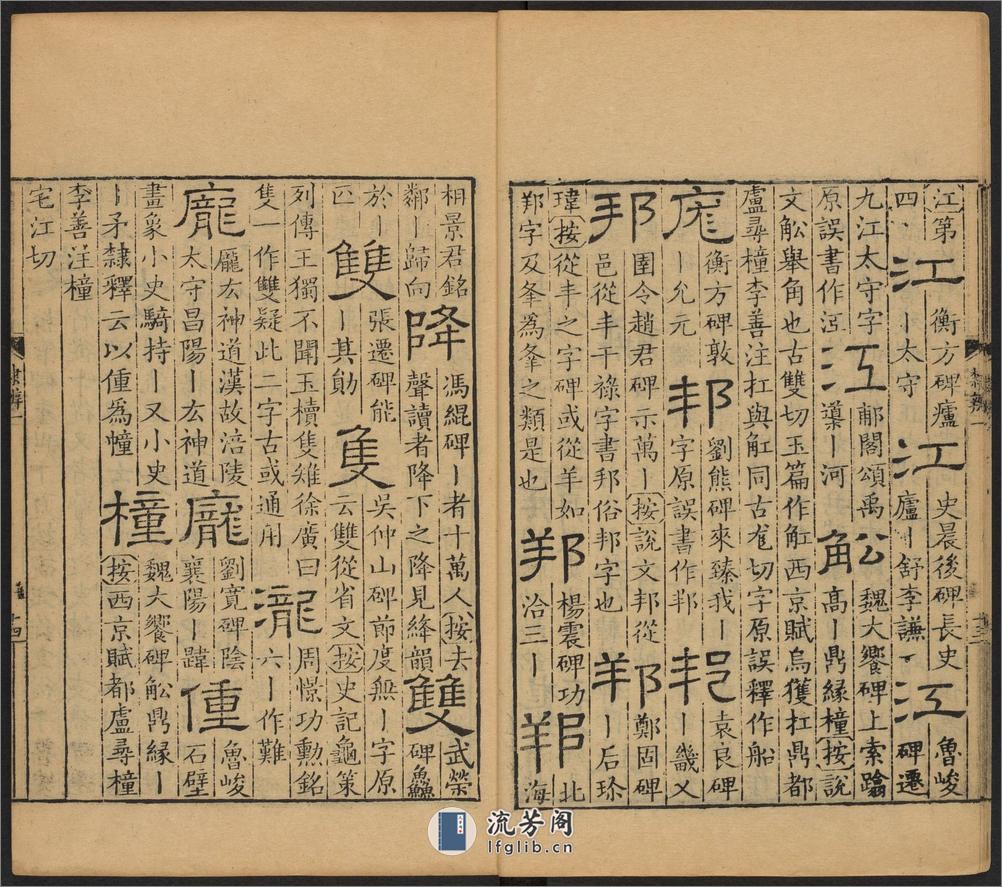 江第 衡方碑廬 史晨後碑長史 魯峻
四 江 丨太守 江 廬丨舒李謙 江 碑遷
九江太守字 郙閣頌禹 魏大饗碑上索蹹
原誤書作 江 導丨河 舩 高丨鼎緣橦按說
文舩舉角也古雙切玉篇作舡西京賦烏獲扛鼎都
盧尋橦李善注扛與舡同古尨切字原誤釋作船
衡方碑敦 劉熊碑來臻我丨 袁良碑
厖 丨允元 邦 字原誤書作邦 邦 丨畿又
圉令趙君碑示萬丨按說文邦從 鄭固碑
邦 邑從丰干祿字書邦俗邦字也 邦 丨后珎
瑋按從丰之字碑或從羊如 楊震碑功 北
邦字及夆為夆之類是也 邦 洽三丨 邦 海
隸辨一
十三
相景君銘 馮緄碑丨者十萬人按去 武榮
鄰丨歸向 降 聲讀者降下之降見絳韻 雙 碑鱻
於丨張遷碑能 吳仲山碑節度無丨字原
匹 雙 丨其勛 隻 云雙從省文按史記龜策
列傳王獨不聞玉櫝隻雉徐廣曰 周憬功勳銘
隻一作雙疑此二字古或通用 瀧 六丨作難
龐厷神道漢故涪陵 劉寬碑陰 魯峻
龐 太守昌陽厷神道 龐 襄陽丨 僮 石壁
畫象小史騎持丨又小史 魏大饗碑舩鼎緣丨
丨矛隸釋云以僮為幢 橦 按西京賦都盧尋橦
李善注橦
宅江切
隸辨一
十四
流芳阁
lfglib.cn